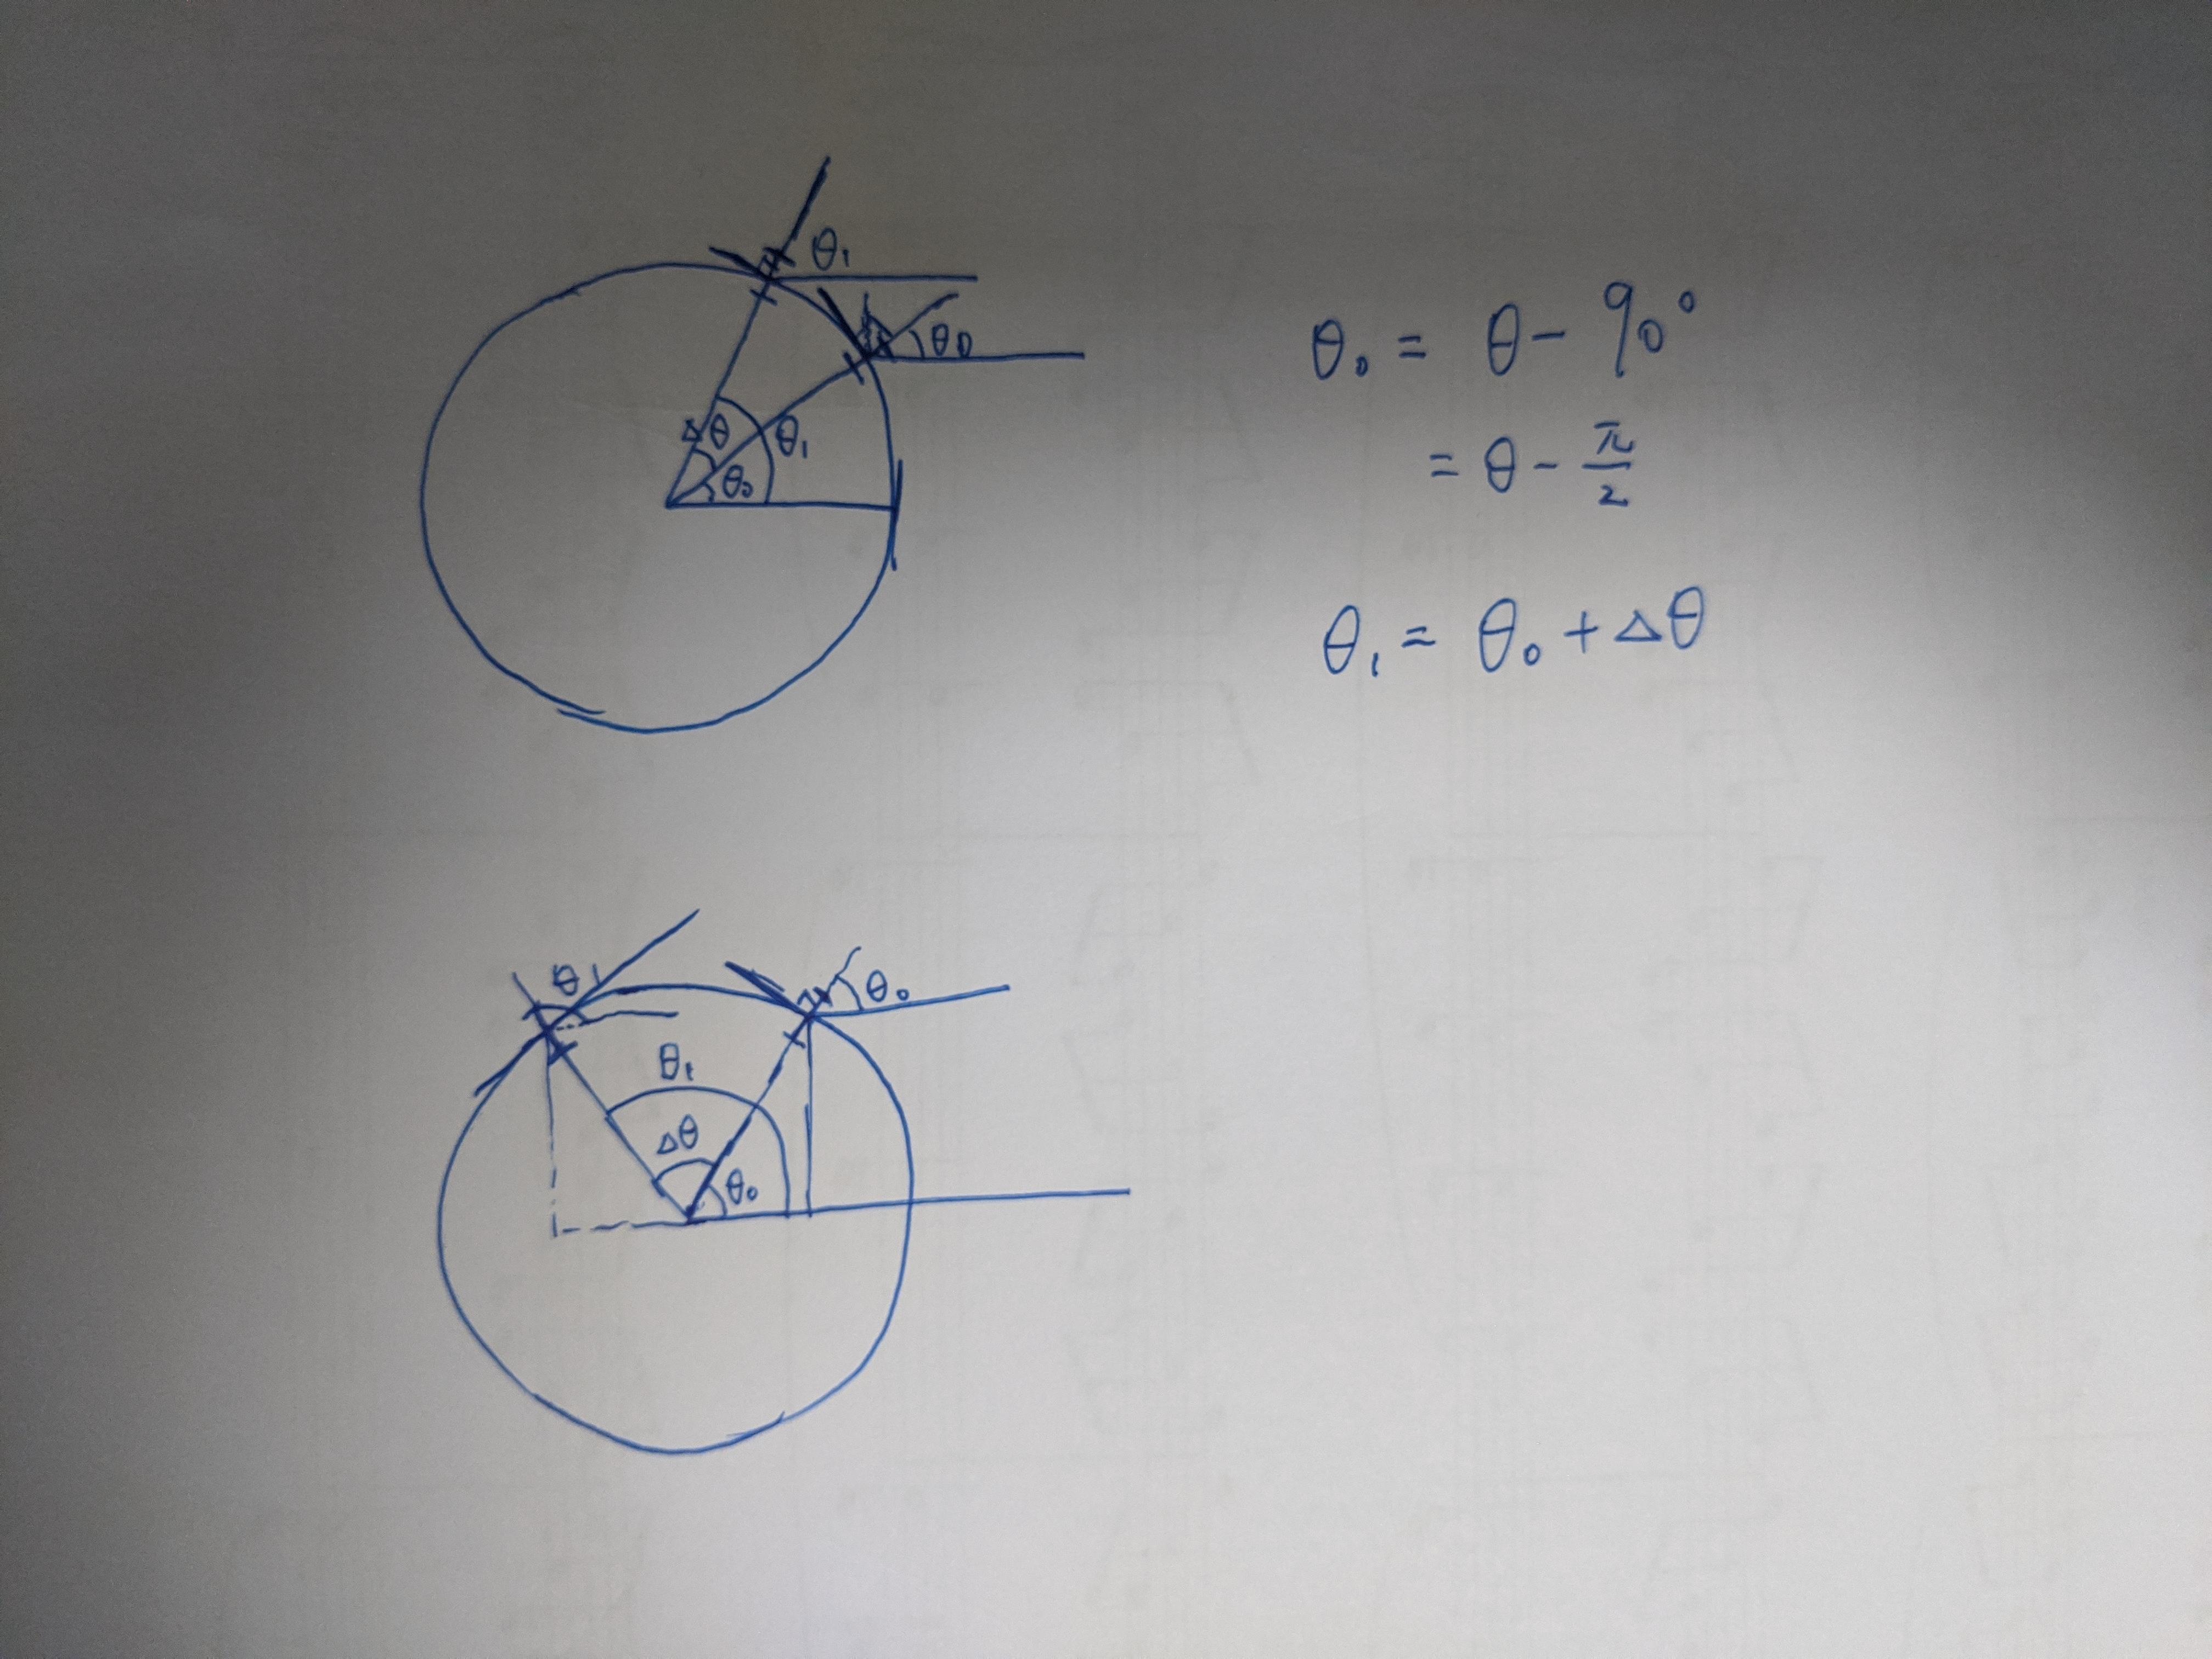 θ₁
θ₀
Δθ
θ₁
θ₀
θ₀ = θ - 90°
= θ - π/2
θ₁ = θ₀ + Δθ
θ₁
θ₀
θ₁
Δθ
θ₀